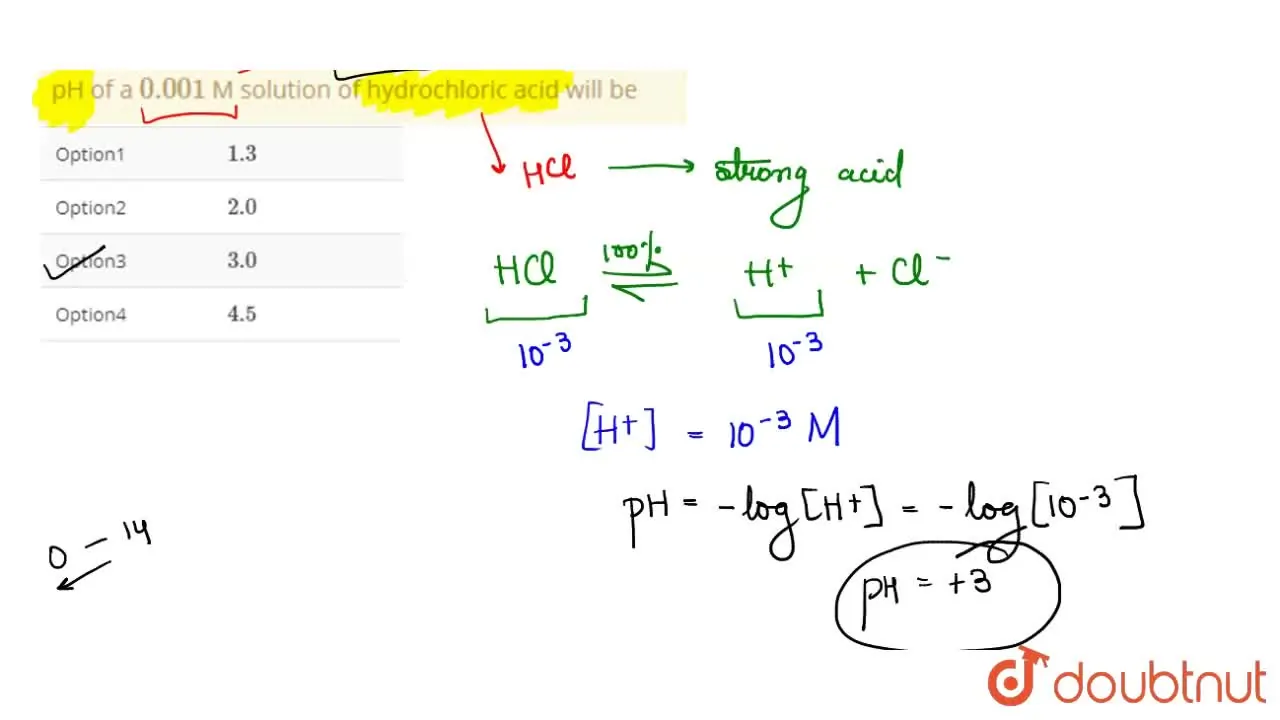 pH of a 0.001 M solution of hydrochloric acid will be
Option1 1.3
Option2 2.0
Option3 3.0
Option4 4.5
HCl → strong acid
HCl ⇌ H+ + Cl-
100%
10-3 10-3
[H+] = 10-3 M
pH = -log[H+] = -log[10-3]
pH = +3
0 - 14
doubtnut